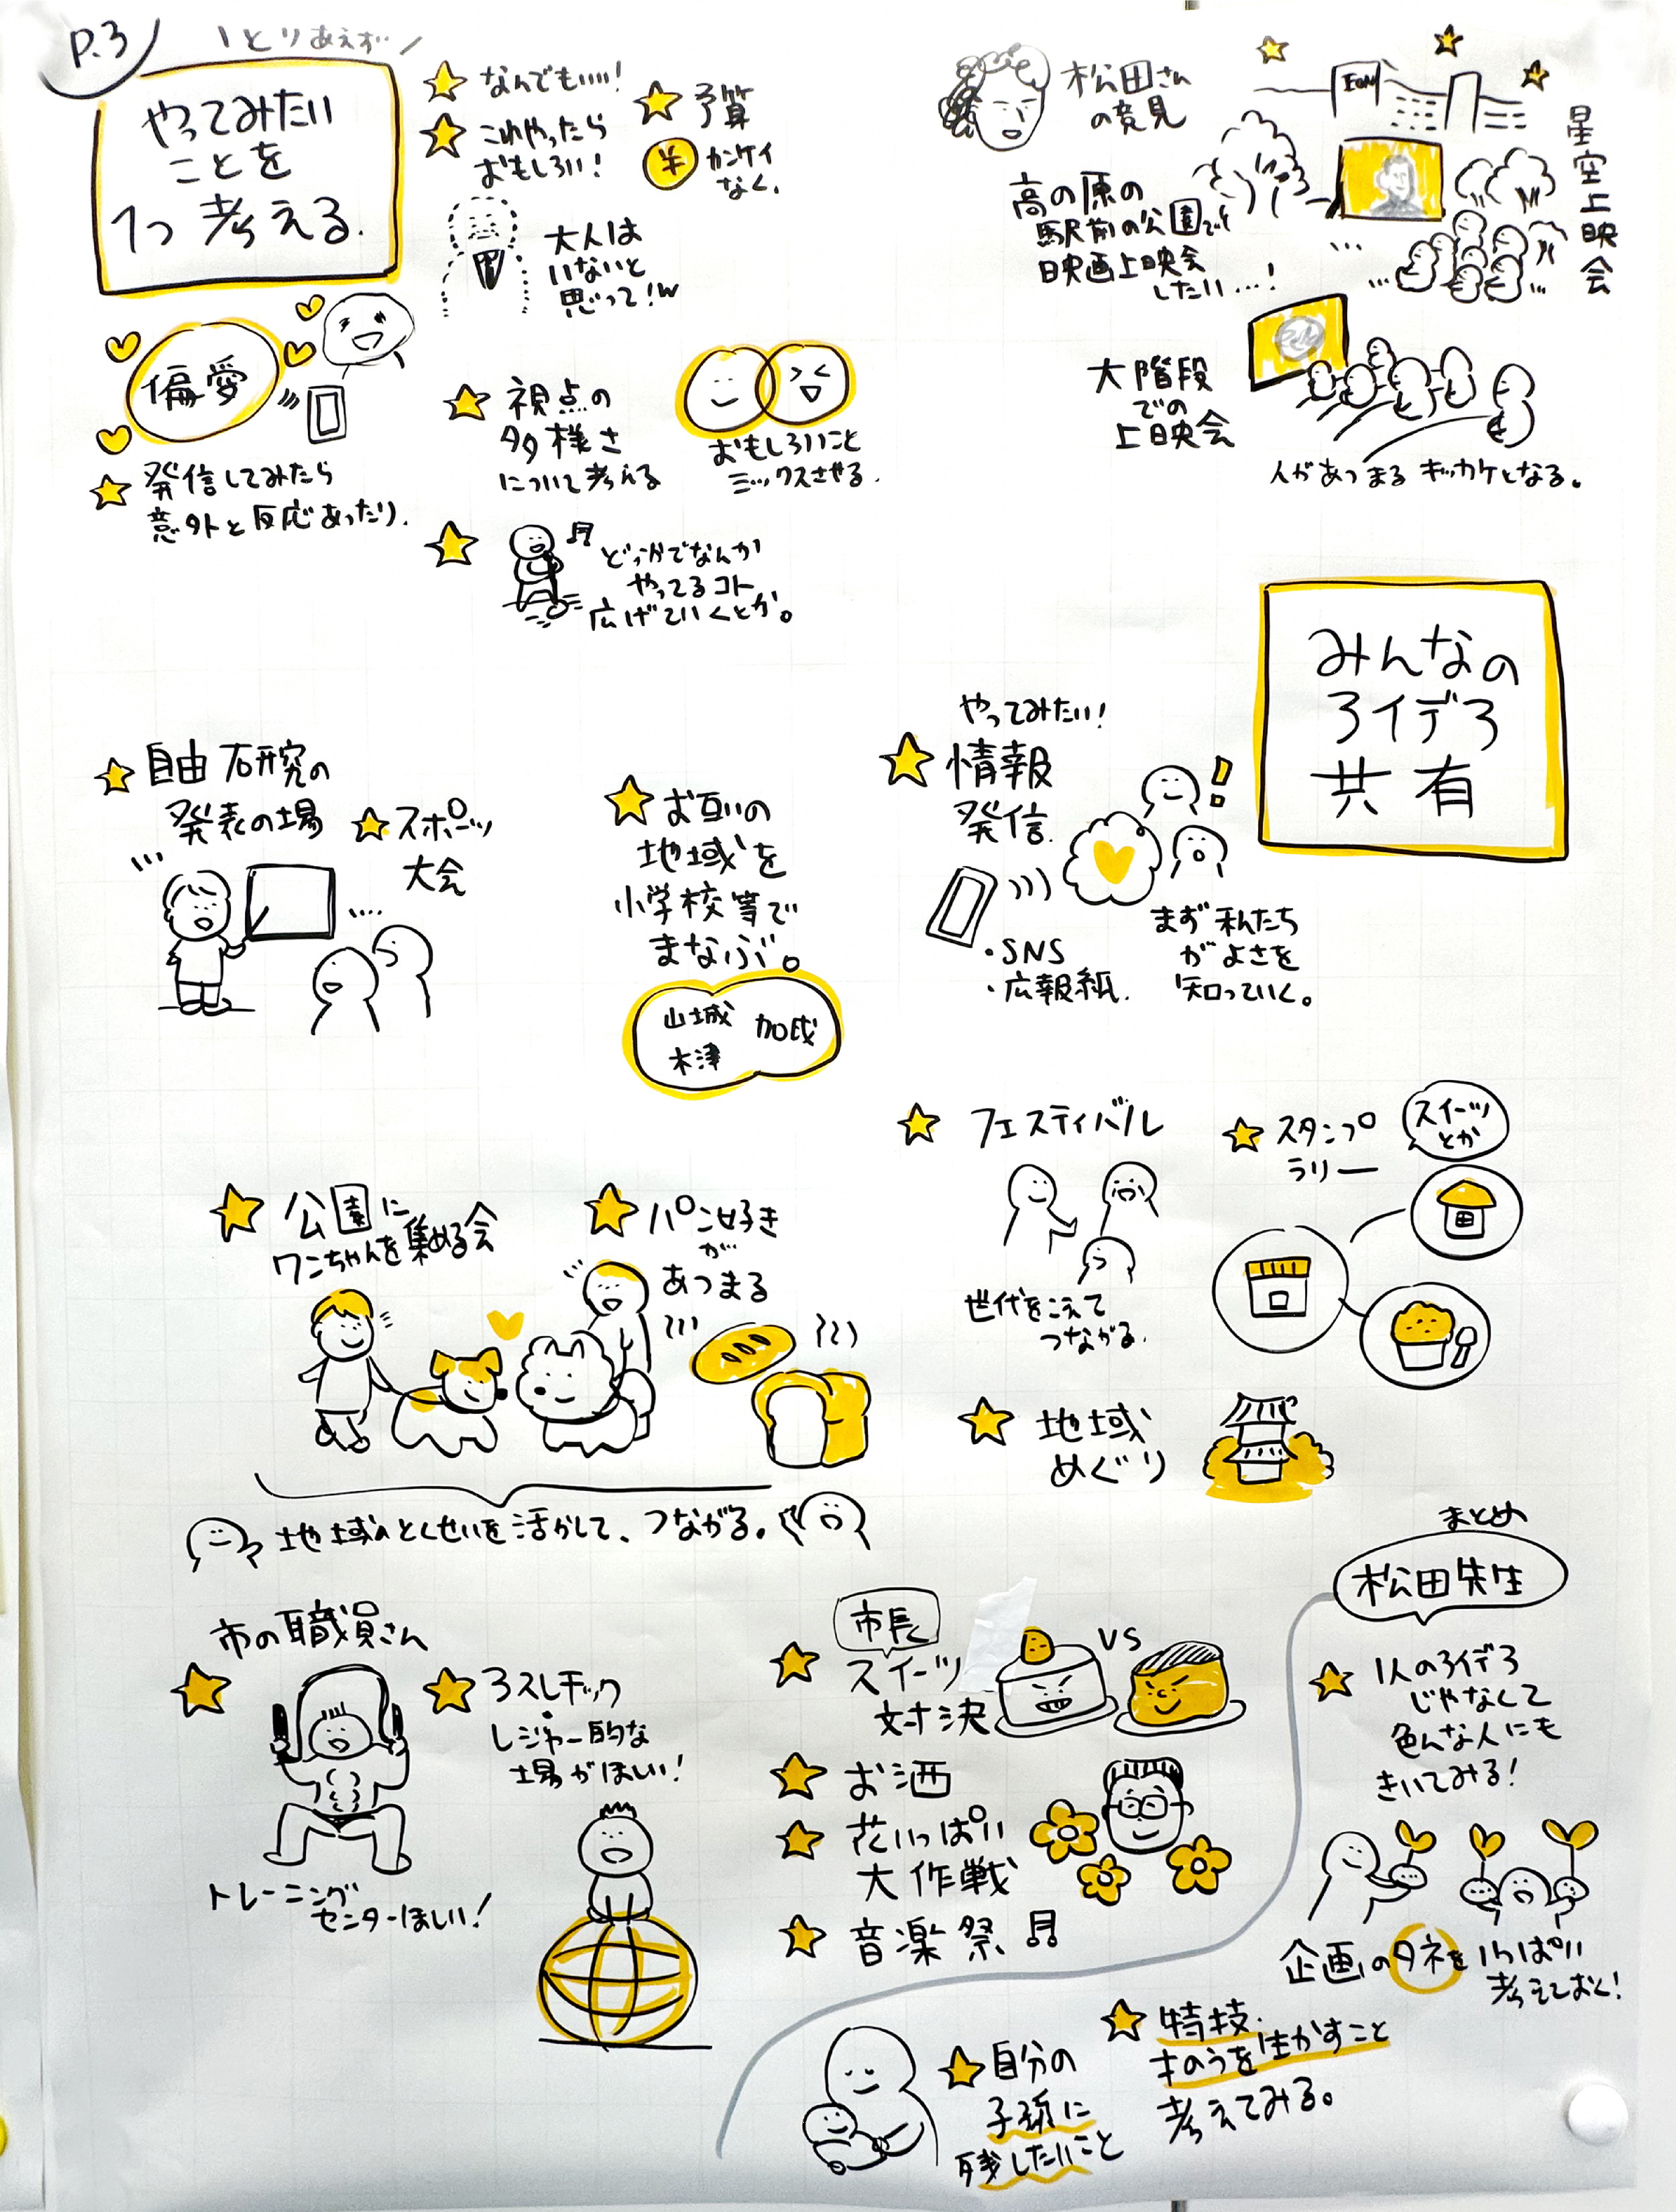 P.3
\とりあえず/
やってみたい
ことを
1つ考える.
なんでもいい!
これやったら
おもしろい!
予算
¥
カンケイ
なく.
大人は
いないと
思って!w
偏愛
発信してみたら
意外と反応あったり.
視点の
多様さ
について考える
おもしろいこと
ミックスさせる.
どっかでなんか
やってるコト
広げていくとか。
松田さん
の意見
高の原の
駅前の公園で
映画上映会
したい…!
星空上映会
大階段
での
上映会
人があつまるキッカケとなる。
みんなの
アイデア
共有
やってみたい!
情報
発信.
・SNS
・広報紙.
まず私たち
がよさを
知っていく。
自由研究の
発表の場
スポーツ
大会
お互いの
地域を
小学校等で
まなぶ。
山城
木津
加茂
フェスティバル
世代をこえて
つながる.
スタンプ
ラリー
スイーツ
とか
地域
めぐり
公園に
ワンちゃんを集める会
パン好き
が
あつまる
地域のとくせいを活かして、つながる。
市の職員さん
トレーニング
センターほしい!
アスレチック
レジャー的な
場がほしい!
市長
スイーツ
対決
VS
お酒
花いっぱい
大作戦
音楽祭
まとめ
松田先生
1人のアイデア
じゃなくて
色んな人にも
きいてみる!
企画のタネをいっぱい
考えておく!
特技.
才のうを生かすこと
考えてみる。
自分の
子孫に
残したいこと